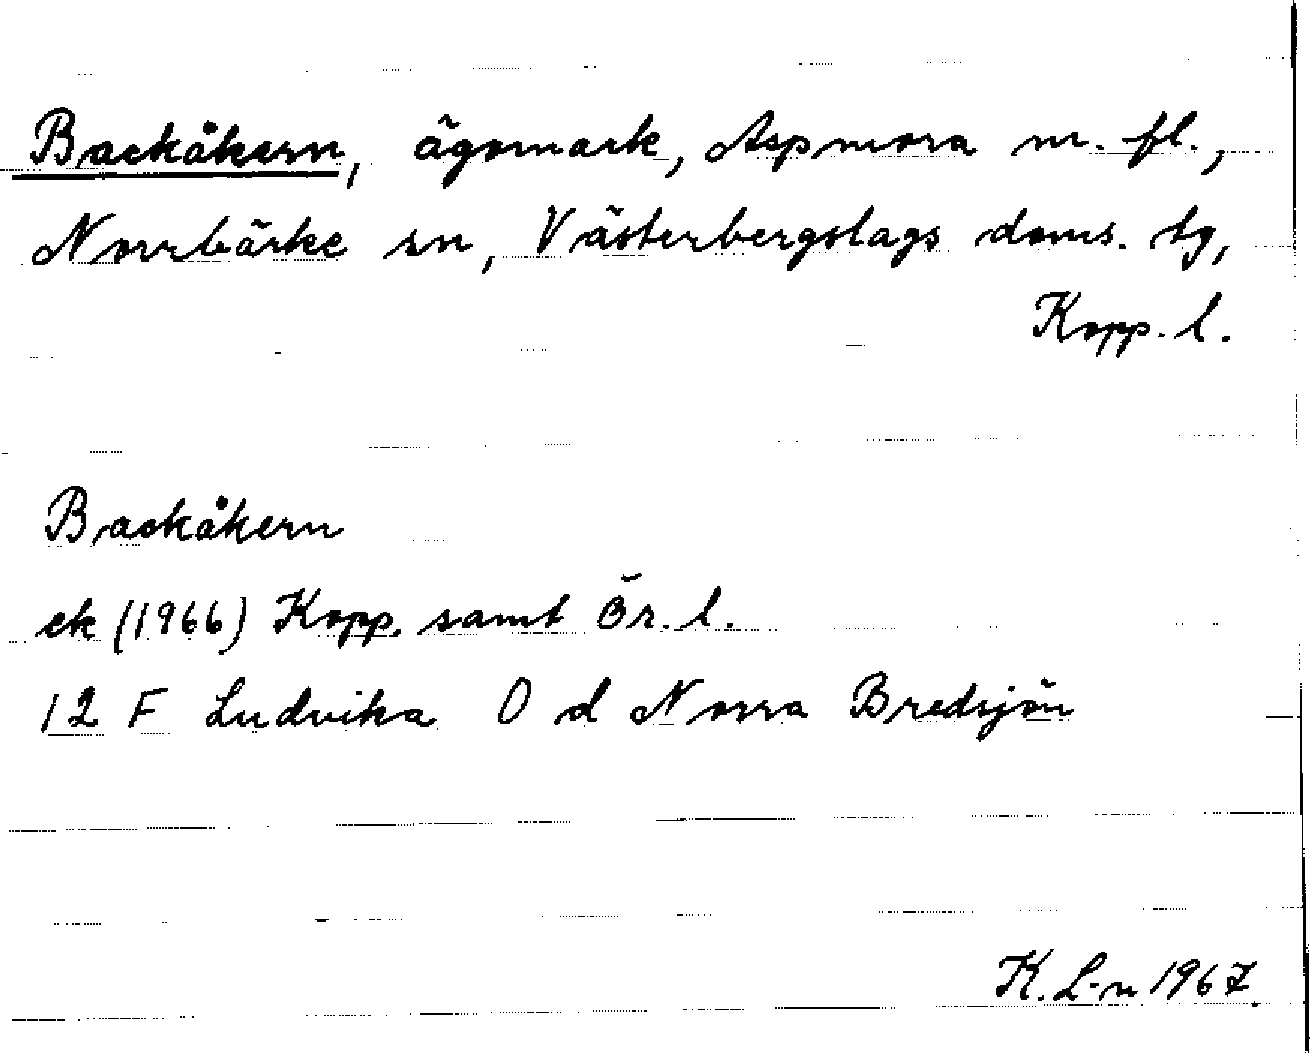 Backåkern, ägomark, Aspmora m. fl.,
Norrbärke sn, Västerbergslags doms. tg,
Kopp. l.
Backåkern
ek (1966) Kopp. samt Ör. l.
12 F Ludvika 0 d Norra Bredsjön
K. L-n 1967.